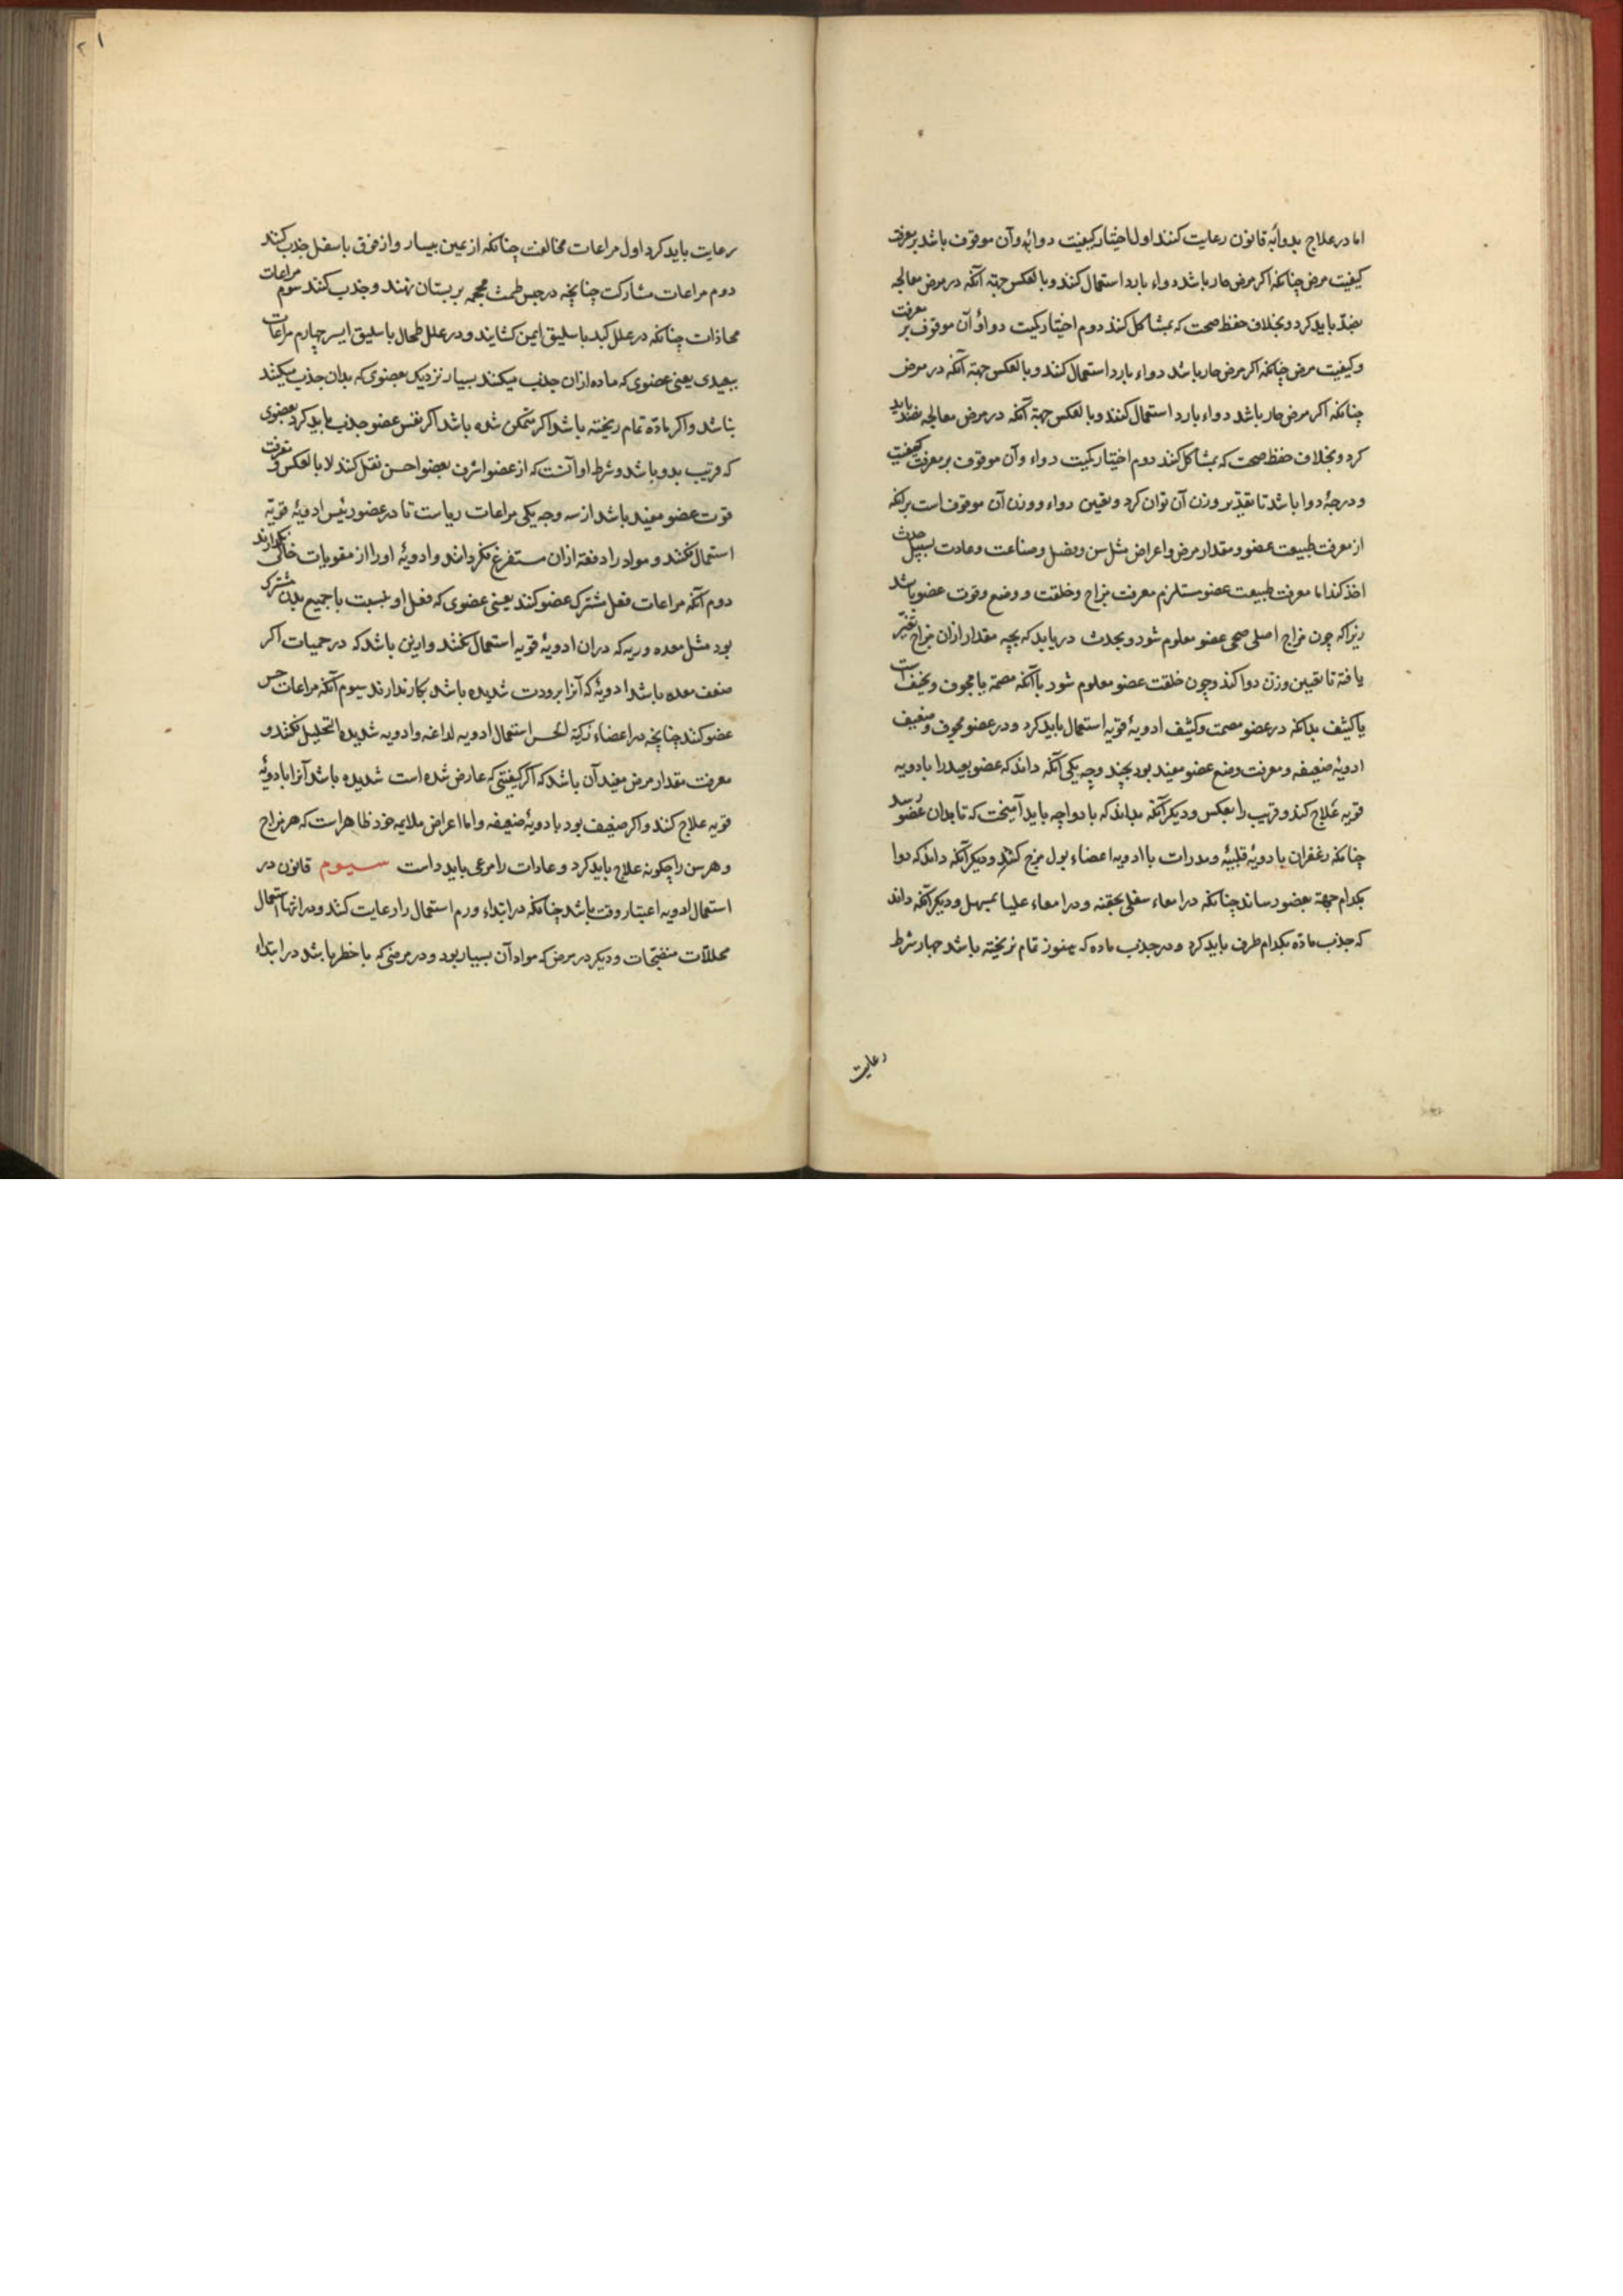 اما در علاج بدوا به قانون رعایت کنند اول اختیار کیفیت دوائی و آن موقوف باشد بر معرفت
کیفیت مرض چنانکه اکر مرض حار باشد دواء بارد استعمال کنند و بالعکس جهة آنکه در مرض معالجه
بضد باید کرد و بخلاف حفظ صحت که بمشاکل کنند دوم اختیار کمیت دوا و آن موقوف بر معرفت
و کیفیت مرض چنانکه اکر مرض حار باشد دواء بارد استعمال کنند و بالعکس جهة آنکه در مرض
چنانکه اکر مرض حار باشد دواء بارد استعمال کنند و بالعکس جهة آنکه در مرض معالجه بضد باید
کرد و بخلاف حفظ صحت که بمشاکل کنند دوم اختیار کمیت دواء و آن موقوف بر معرفت کیفیت
و درجۀ دوا باشد تا تقدیر وزن آن توان کرد و تعین دواء و وزن آن موقوف است برآنکه
از معرفت طبیعت عضو و مقدار مرض و اعراض مثل سن و فصل و صناعت و عادت بسبیل حدث
اخذ کند اما معرفت طبیعت عضو مستلزم معرفت مزاج و خلقت و وضع و قوت عضو باشد
زیراکه چون مزاج اصلی صحی عضو معلوم شود و بحدث دریابد که بچه مقدار ازان مزاج تغیر
یافته تا تعیین وزن دوا کند و چون خلقت عضو معلوم شود باآنکه مصمة یا مجوف و نحیف است
یا کثیف بداند که در عضو مصمت و کثیف ادویۀ قویه استعمال باید کرد و در عضو مجوف و ضعیف
ادویۀ ضعیفه و معرفت وضع عضو مفید بود بچند وجه یکی آنکه داند که عضو بعید را بادویه
قویه علاج کند و قریب را بعکس و دیکر آنکه بداند که با دوا چه باید آمیخت که تا بدان عضو رسد
چنانکه زعفران با دویۀ قلبیۀ و مدرات با ادویه اعضاء بول مزج کنند و دیکر آنکه داند که دوا
بکدام جهة بعضو رساند چنانکه در امعاء سفلی بحقنه و در امعاء علیا بمسهل و دیکر آنکه داند
که جذب ماده بکدام طرف باید کرد و در جذب ماده که هنوز تمام نریخته باشد چهار شرط
رعایت
۲۱
رعایت باید کرد اول مراعات مخالفت چنانکه از یمین بیسار و از فوق باسفل جذب کنند
دوم مراعات مشارکت چنانچه در حبس طمث محجمه بر پستان نهند و جذب کنند سوم مراعات
محاذات چنانکه در علل کبد باسلیق ایمن کشایند و در علل طحال باسلیق ایسر چهارم مراعات
ببعیدی یعنی عضوی که ماده ازان جذب میکند بسیار نزدیک بعضوی که بدان جذب میکنند
نباشد و اکر ماده تمام ریخته باشد اکر متمکن شده باشد اکر نفس عضو جذب باید کرد بعضوی
که قریب بدو باشد و شرط او آنست که از عضو اشرف بعضو احسن نقل کند لا بالعکس و معرفت
قوت عضو مفید باشد از سه وجه یکی مراعات ریاست تا در عضو رئیس ادویۀ قویه
استعمال نکنند و مواد را دفعة ازان مستفرغ نکردانند و ادویۀ او را از مقویات خالی نکذارند
دوم آنکه مراعات فعل مشترک عضو کنند یعنی عضوی که فعل او نسبت با جمیع بدن مشترک
بود مثل معده و ریه که دران ادویۀ قویه استعمال نکنند و ازین باشد که در حمیات اکر
ضعف معده باشد ادویۀ که آنرا برودت شدیده باشد بکار ندارند سیوم آنکه مراعات حس
عضو کنند چنانچه در اعضاء زکیة الحس استعمال ادویه لداغه و ادویه شدیده التحلیل نکنند و
معرفت مقدار مرض مفید آن باشد که اکر کیفیتی که عارض شده است شدیده باشد آنرا بادویۀ
قویه علاج کنند و اکر ضعیف بود بادویۀ ضعیفه و اما اعراض ملایمه خود ظاهر است که هر مزاج
و هر سن را چکونه علاج باید کرد و عادات را مرعی باید داست سیوم قانون در
استعمال ادویه اعتبار وقت باشد چنانکه در ابتداء ورم استعمال رادعات کنند و در انتها استعمال
محللات منضجات و دیکر در مرض که مواد آن بسیار بود و در مرضی که با خطر باشد در ابتداء